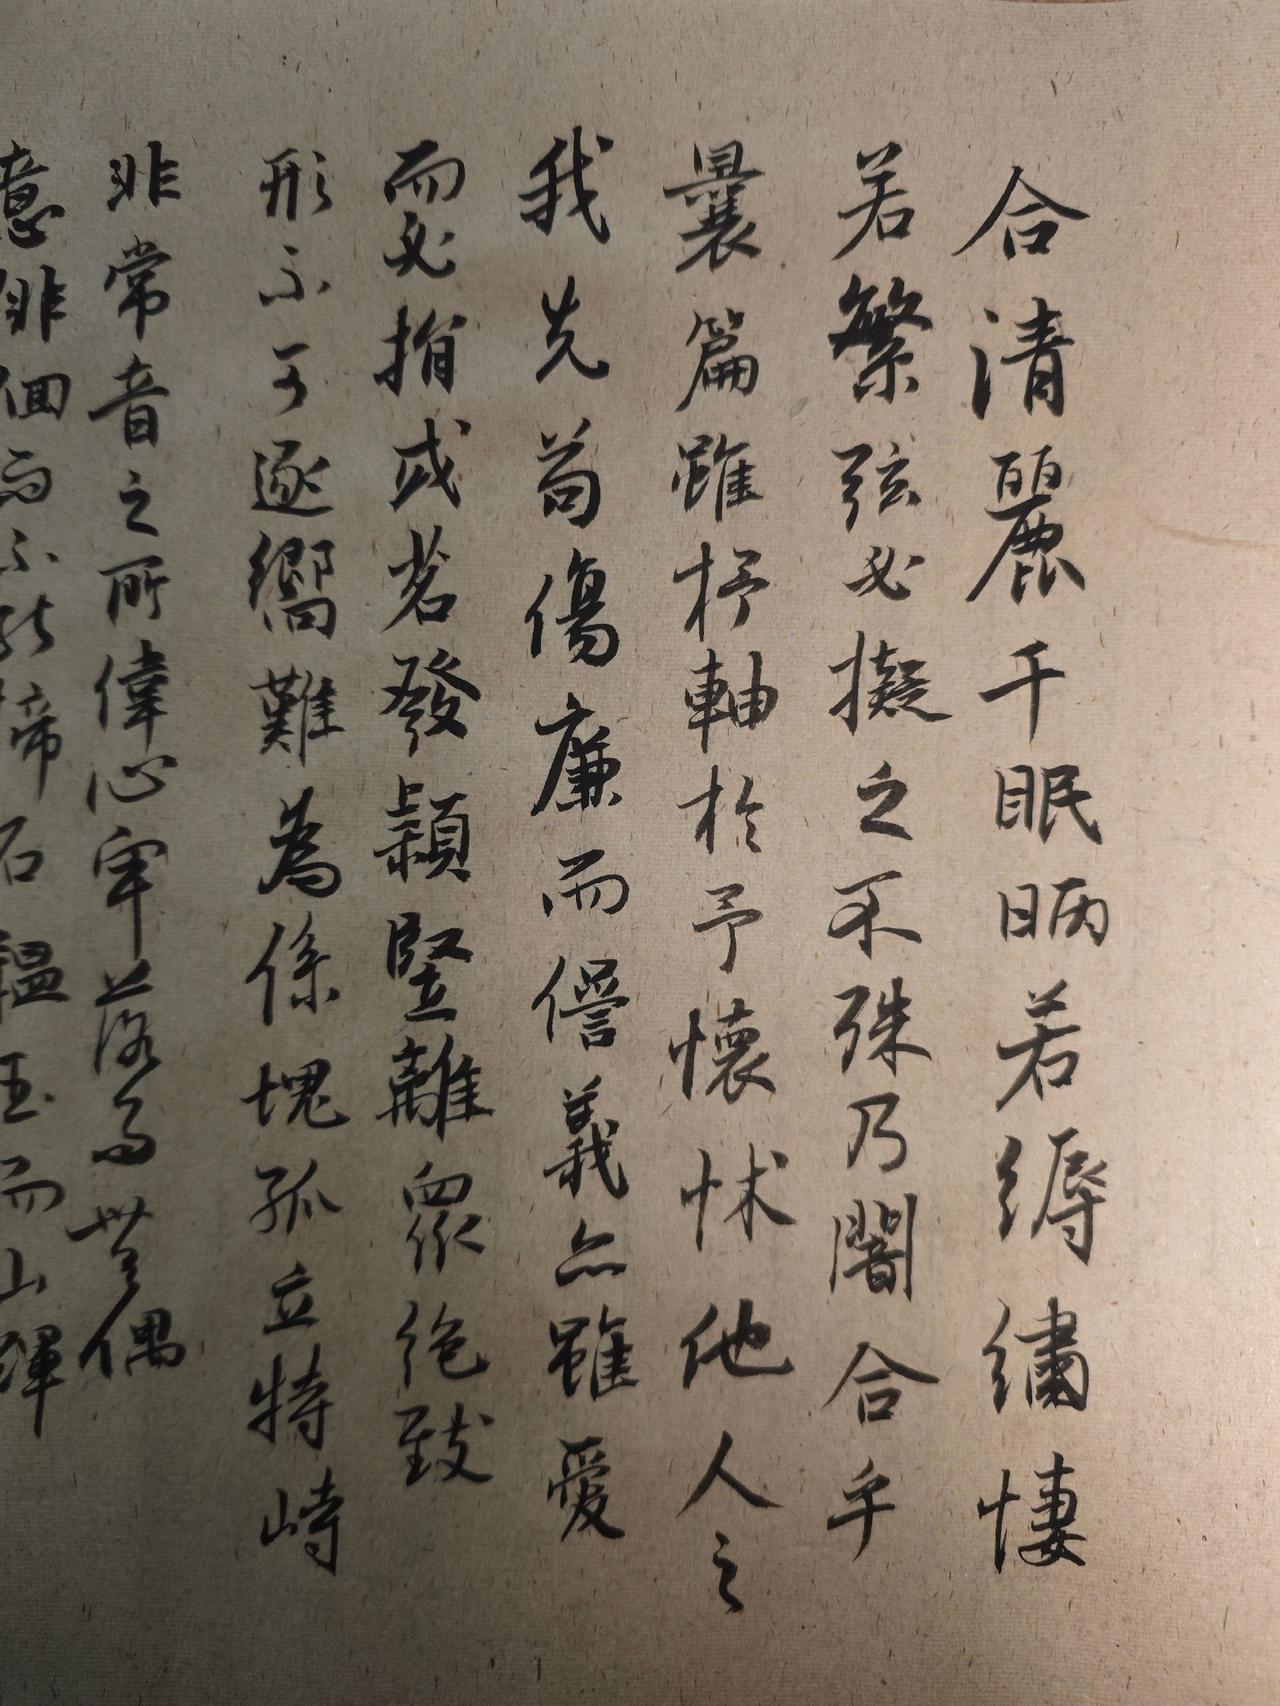 合清麗千眠昞若縟繡悽
若繁弦必擬之不殊乃闇合乎
曩篇雖杼軸於予懷怵他人之
我先苟傷廉而僁義亦雖愛
而必捐或苕發穎豎離眾絕致
形不可逐嚮難為係塊孤立特峙
非常音之所偉心牢落而無偶
意徘徊而不能揥石韞玉而山輝